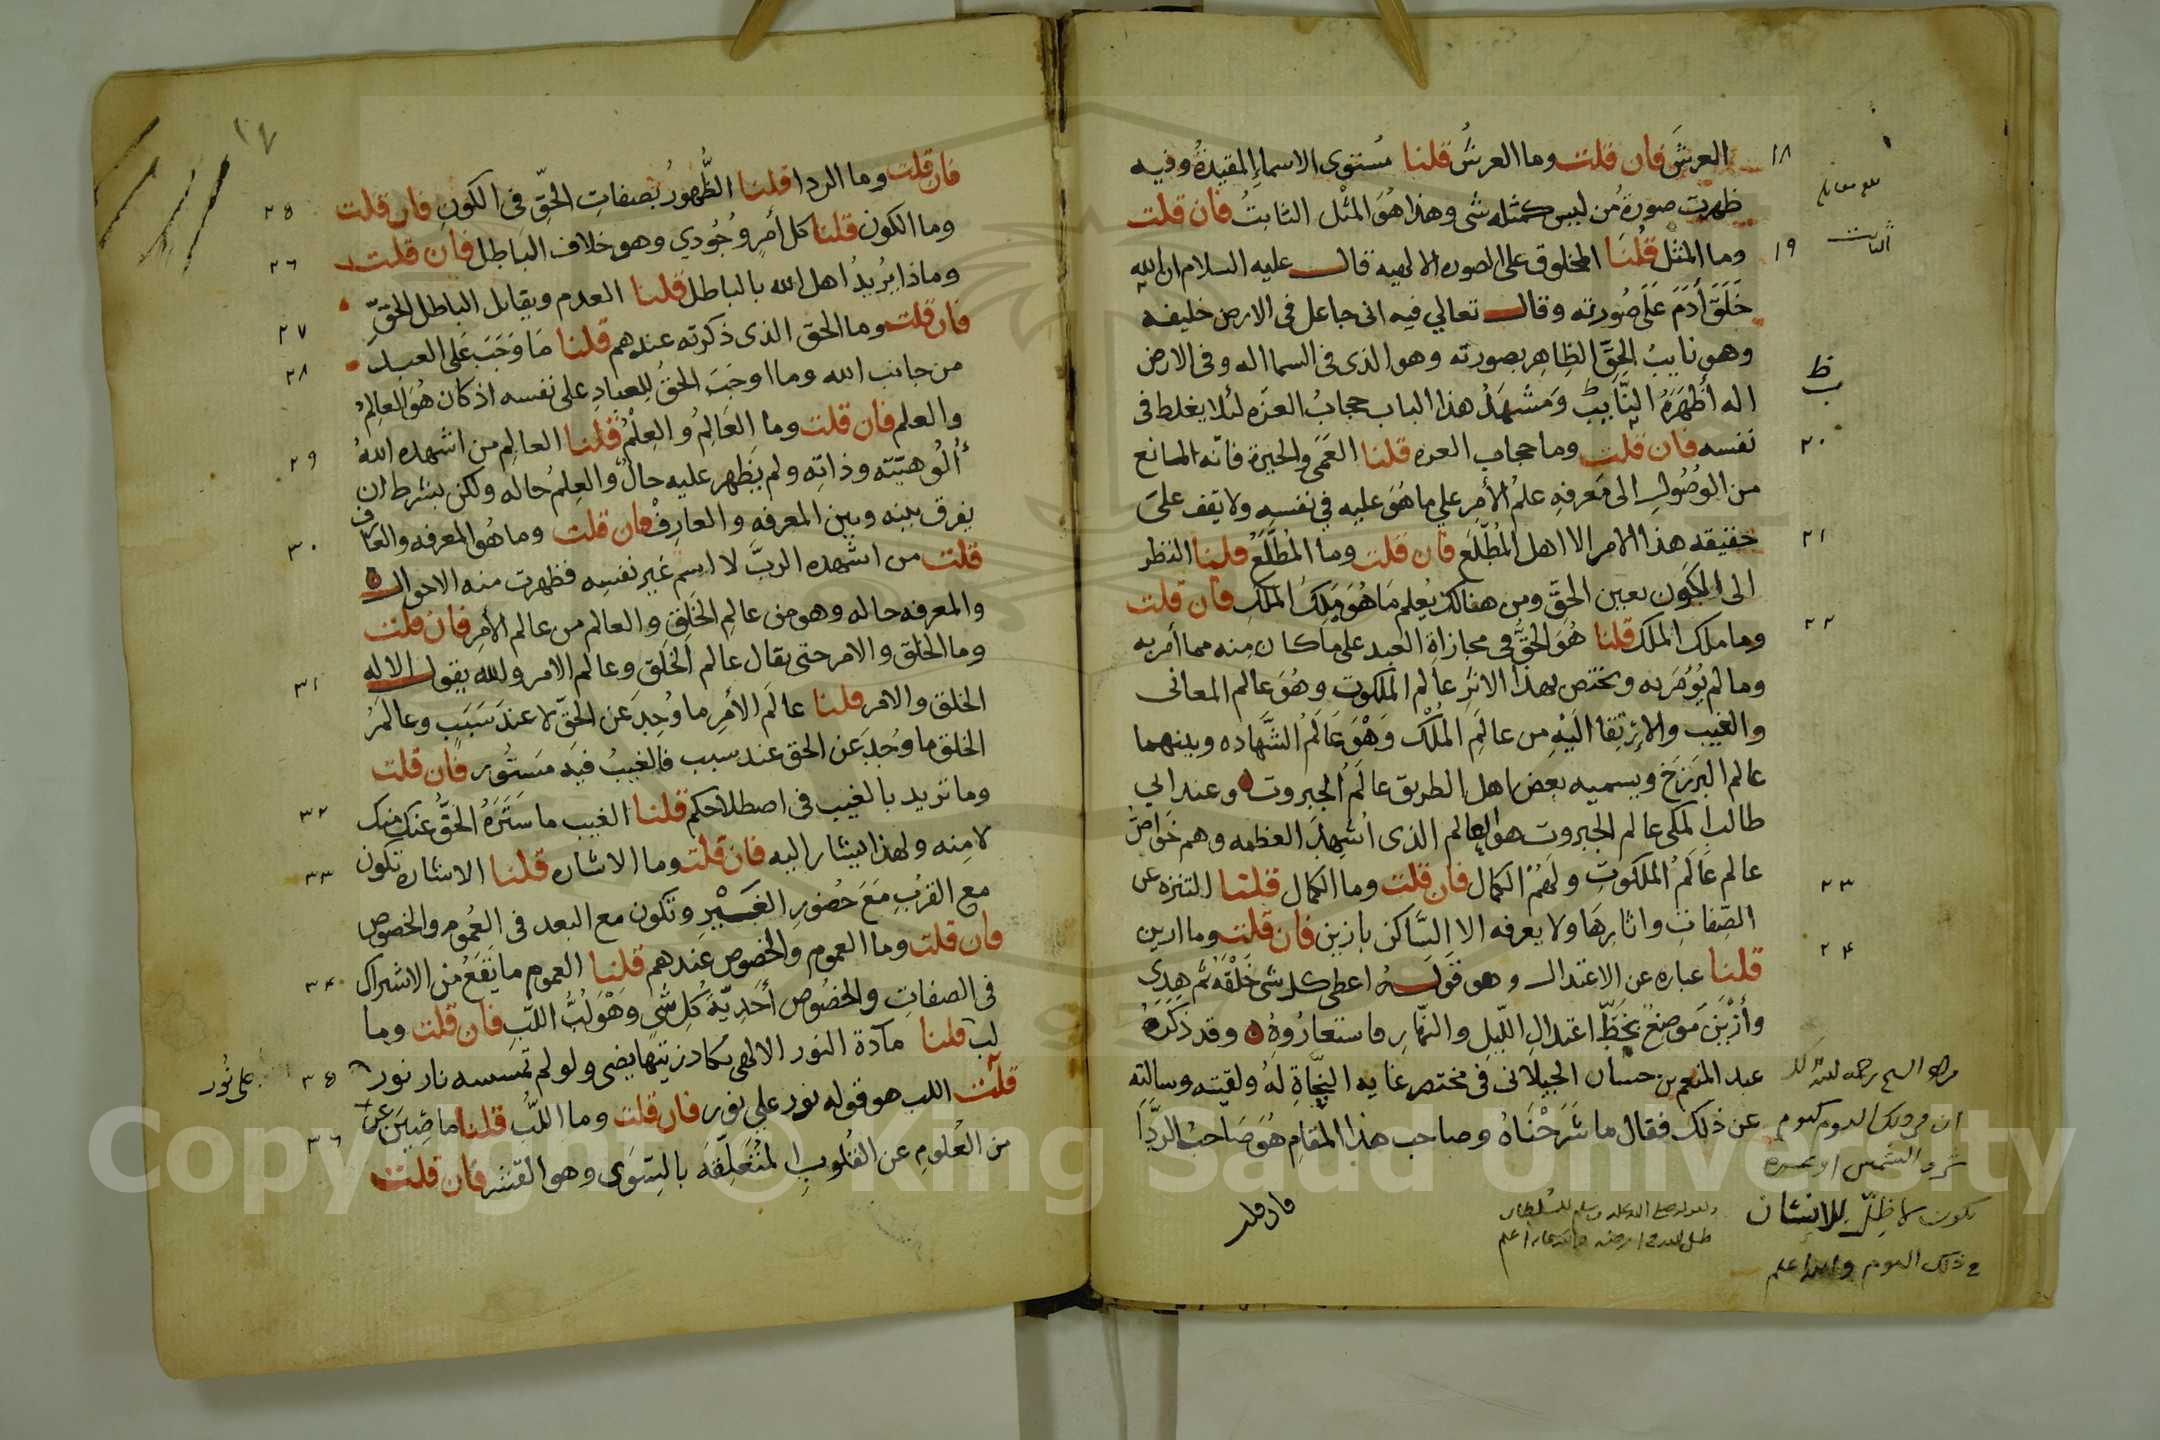 العرشَ فان قلت وما العرشُ قلنا مُستوى الاسماءِ المقيدةُ وفيه
١٨
ظهرت صورةُ من ليس كمثله شى وهذا هوَ المثْل الثابتُ فان قلت
وما المثل قلنَا المخلوق على الصوره الالهيه قال عليه السلام ان الله
١٩
خَلَقَ أَدَمَ عَلَى صُورته وقال تعالي فيه انى جاعل فى الارض خليفه
وهو نايبُ الحقِّ الظاهِر بصورته وهو الذى فى السما اله وفى الارض
اله أظهَرَهُ النَّايبُ وَمشهَدُ هذا الباب حجابُ العزه لئلا يغلط فى
نفسه فان قلت وما حجاب العزه قلنا العَمَى والحيرة فانّه المانع
٢٠
من الوُصُولِ الى مَعرفهِ علمُ الأمِر علي ما هُوَ عليه في نفسِهِ ولا يقف علىَ
حقيقه هذا الامر الا اهل المُطَّلَع فان قلت وما المُطَّلَعُ قلنا النظر
٢١
الى الكَون بعين الحقِّ ومن هنالك يُعلم مَا هُوَ مَلِكُ المَلكِ فان قلت
وما ملك المَلك قلنا هُوَ الحقُّ فى مجازاةِ العبد على ما كان منه مما أمر به
٢٢
وما لم يُؤمَر به ويختص بهذا الامر عالم الملكوت وهُوَ عَالم المعانى
والغيب والارتِقا اليْهِ من عالَمِ المُلْك وَهْوَ عَالَمُ الشَّهاده وبينهما
عالم البَرزَخ ويسميه بعض اهل الطريق عالَمُ الجبروت وعند ابي
طالب المكى عالم الجبروت هو العالم الذى اُشهِدَ العظمه وهم خَوَاصُّ
عالم عَالَمُ الملكوتِ ولَهُمْ الكمال فان قلت وما الكمال قلنا التنزه عن
٢٣
الصِّفاتِ واثارِهَا ولا يعرفه الا السَّاكن بازين فان قلت وما ارين
قلنا عباره عن الاعتدال وهو قَوله اعطى كل شى خَلْقَهُ ثم هدى
٢٤
وأزيْنَ مَوضعٌ بخطِّ اعتدالِ اللّيلِ والنّهارِ فاستعارُوهُ وقد ذكَرَهُ
عبد المنعم بن حسان الجيلانى فى مختصر غايه النجاةِ لَهُ ولقيته وسالته
عن ذلك فقال ما شَرَحْنَاهُ وصاحب هذا المقامِ هُوَ صَاحبُ الردَّا
فان قلت
ظ
ان
اليوم
يكون لا ظِلّ للانسَان
ذلك اليوم والله اعلم
١٧
فان قلت وما الردا قلنا الظُّهورُ بصفاتِ الحقِّ فِى الكونِ فان قلت
٢٥
وما الكون قلنا كل أمرٍ وُجُودي وهو خلاف الباطل فان قلت
٢٦
وماذا يرُيدُ اهل الله بالباطل قلنا العدم ويقابل الباطل الحقّ
فان قلت وما الحق الذى ذكرته عندهم قلنا مَا وَجَبَ عَلى العبد
٢٧
من جانب الله وما اوجَبَ الحقُ للعبادِ على نفسه اذ كان هُوَ العالِمُ
٢٨
والعلم فان قلت وما العَالِمُ والعِلْمُ قلنا العالِم من اشهده اللهُ
٢٩
أُلُوهيّته وذاتِه ولم يَظهر عليه حالٌ والعِلمُ حاله ولكن بشرط ان
يفرق بينه وبين المعرفه والعارِفْ فان قلت وما هُو المعرفه والعارف
٣٠
قلت من اشهده الربَّ لا اسم غير نفسِه فظهرت منه الاحوال
والمعرفه حاله وهو من عالمِ الخَلقِ والعالم من عالم الأمِر فان قلت
وما الخلق والامر حتى يقال عالم الخَلق وعالم الامر ولله يقول الا له
٣١
الخلق والامر قلنا عالَم الأمِر ما وُجِدَ عَن الحقّ لا عندَ سَبَبٍ وعالمُ
الخلق ما وُجدَ عَن الحق عند سبب فالغيبُ فيه مَستُور فان قلت
وما تريد بالغيب فى اصطلاحكم قلنا الغيب ما ستَرَهُ الحقُّ عنك منك
٣٢
لا مِنه ولهذا يشار اليه فان قلت وما الاشاره قلنا الاشاره تكون
٣٣
مع القرُبِ مَعَ حُضورِ الغَيْرِ وتكون مع البعد فى العُموم والخصوص
فان قلت وما العموم والخصوص عندهم قلنا العموم ما يَقَعُ من الاشتراك
٣٤
فى الصفاتِ والخصُوص أَحَديّةُ كُلِ شَىٍ وَهْوَ لُبُّ اللّبِ فان قلت وما
لب قلنا مادة النور الالهى يكاد زيتها يضى ولو لم تمسسه نار نور
٣٥
على نُور
قلت اللب هو قوله نور علي نور فان قلت وما اللبُّ قلنا ما صِينَ عن
٣٦
من العُلومِ عن القُلوبِ المتُعَلِقَه بالسِّوَى وهو القشر فان قلت
Copyright © King Saud University